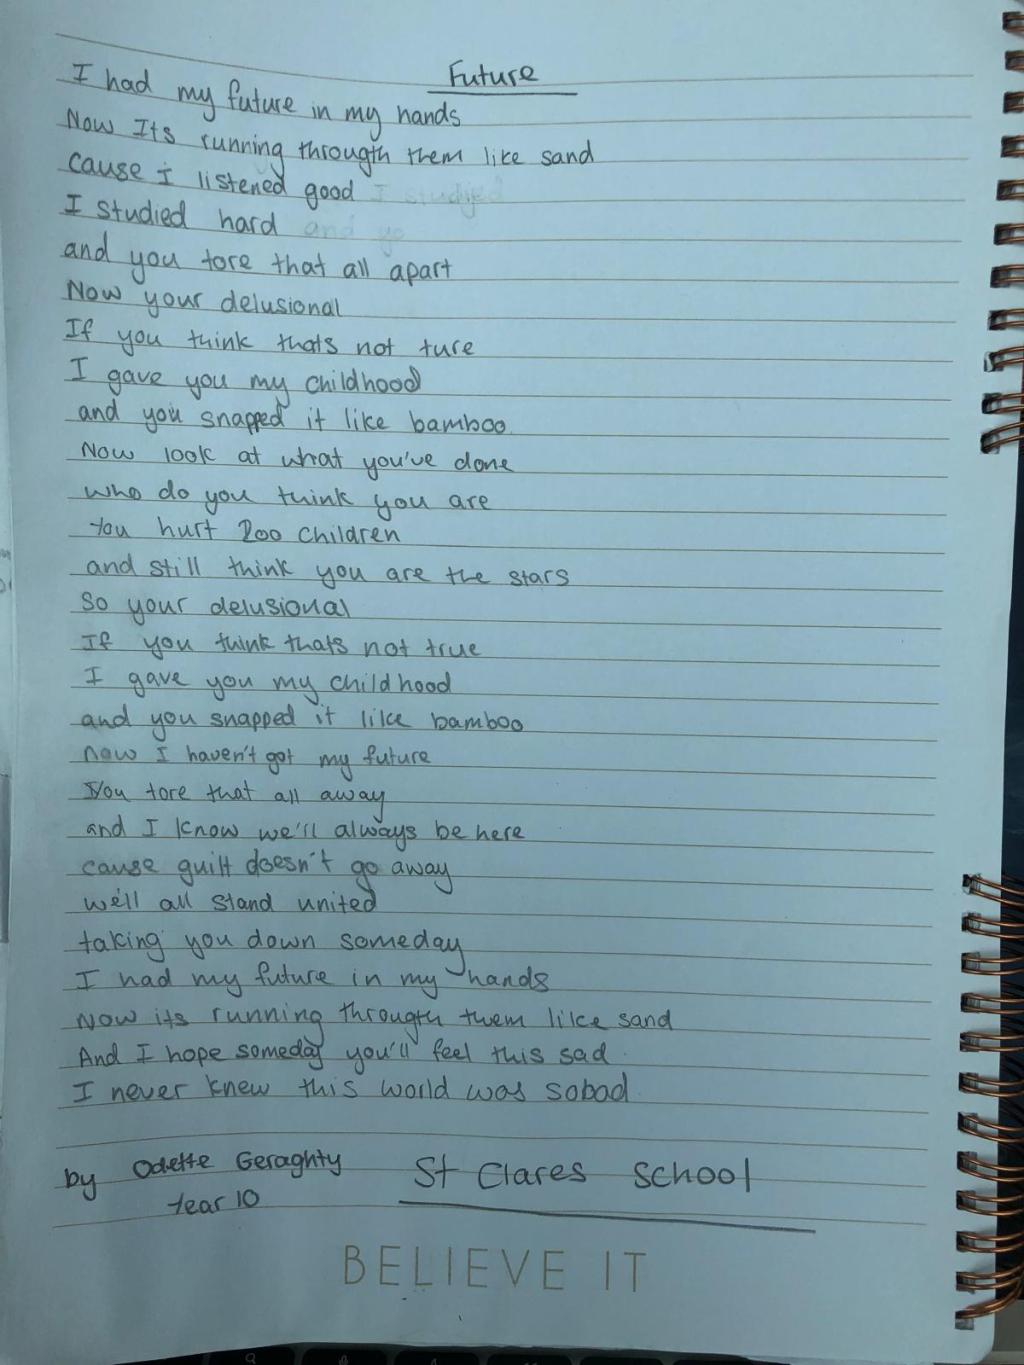 Future
I had my future in my hands
Now Its running throught them like sand
cause i listened good I studied
I studied hard and yo
and you tore that all apart
Now your delusional
If you think thats not ture
I gave you my childhood
and you snapped it like bamboo
Now look at what you've done
who do you think you are
You hurt 200 children
and still think you are the stars
So your delusional
If you think thats not true
I gave you my childhood
and you snapped it like bamboo
now I haven't got my future
You tore that all away
and I know we'll always be here
cause guilt doesn't go away
we'll all stand united
taking you down someday
I had my future in my hands
Now its running throught them like sand
And I hope someday you'll feel this sad
I never knew this world was so bad
by Odette Geraghty St Clares School
Year 10
BELIEVE IT